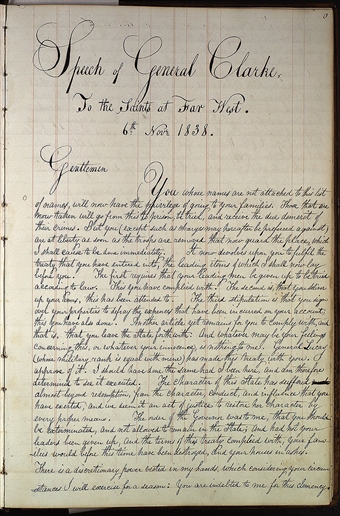 Speech of General Clarke,
To the Saints at Far West.
6th Novr 1838.
Gentlemen
You whose names are not attached to this list
of names, will now have the privilege of going to your families. Those that are
now taken will go from this to prison, to tried, and receive the due demerit of
their crimes. But you (except such as charges may hereafter be preferred against)
are at liberty as soon as the troops are removed that now guard the place, which
I shall cause to be done immediately. It now devolves upon you to fulfil the
treaty that you have entered into, the leading items of which I shall now lay
before you. The first requires that your leading men be given up to be tried
according to law. This you have complied with. The second is, that you deliver
up your arms, this has been attended to. The third stipulation is that you sign
over your properties to defray the expenses that have been incurred on your account;
this you have also done. Another article yet remains for you to comply with, and
that is, that you leave the State forthwith: And whatever may be your feelings
concerning this, or whatever your innocence, is nothing to me. General
(whose military rank is equal with mine) has made this treaty with you. I
approve of it. I should have done the same had I been here, and am therefore
determined to see it executed. The character of this State has suffered
almost beyond redemption, from the character, conduct, and influence that you
have exerted, and we deem it an act of justice to restore her character by
every proper means. The order of the Governor was to me, that you should
be exterminated, and not allowed to remain in the State, and had not your
leaders been given up, and the terms of this treaty complied with, your fami
lies would before this time have been destroyed, and your houses in ashes.
There is a discretionary power vested in my hands, which considering your circum
stances I will exercise for a season: You are indebted to me for this clemency.